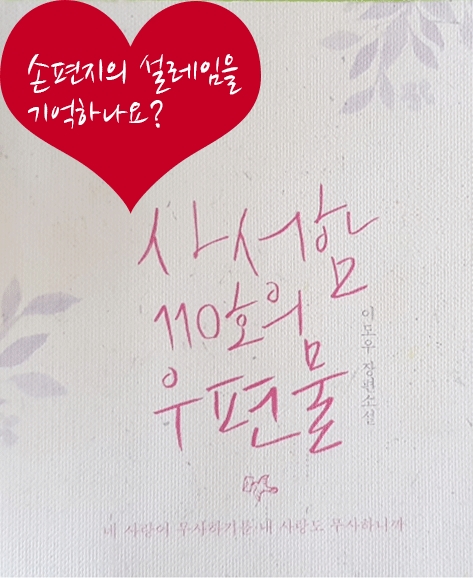 손편지의 설레임을
기억하나요?
사서함
110호의
우편물
이도우 장편소설
네 사랑이 무사하기를 내 사랑도 무사하니까